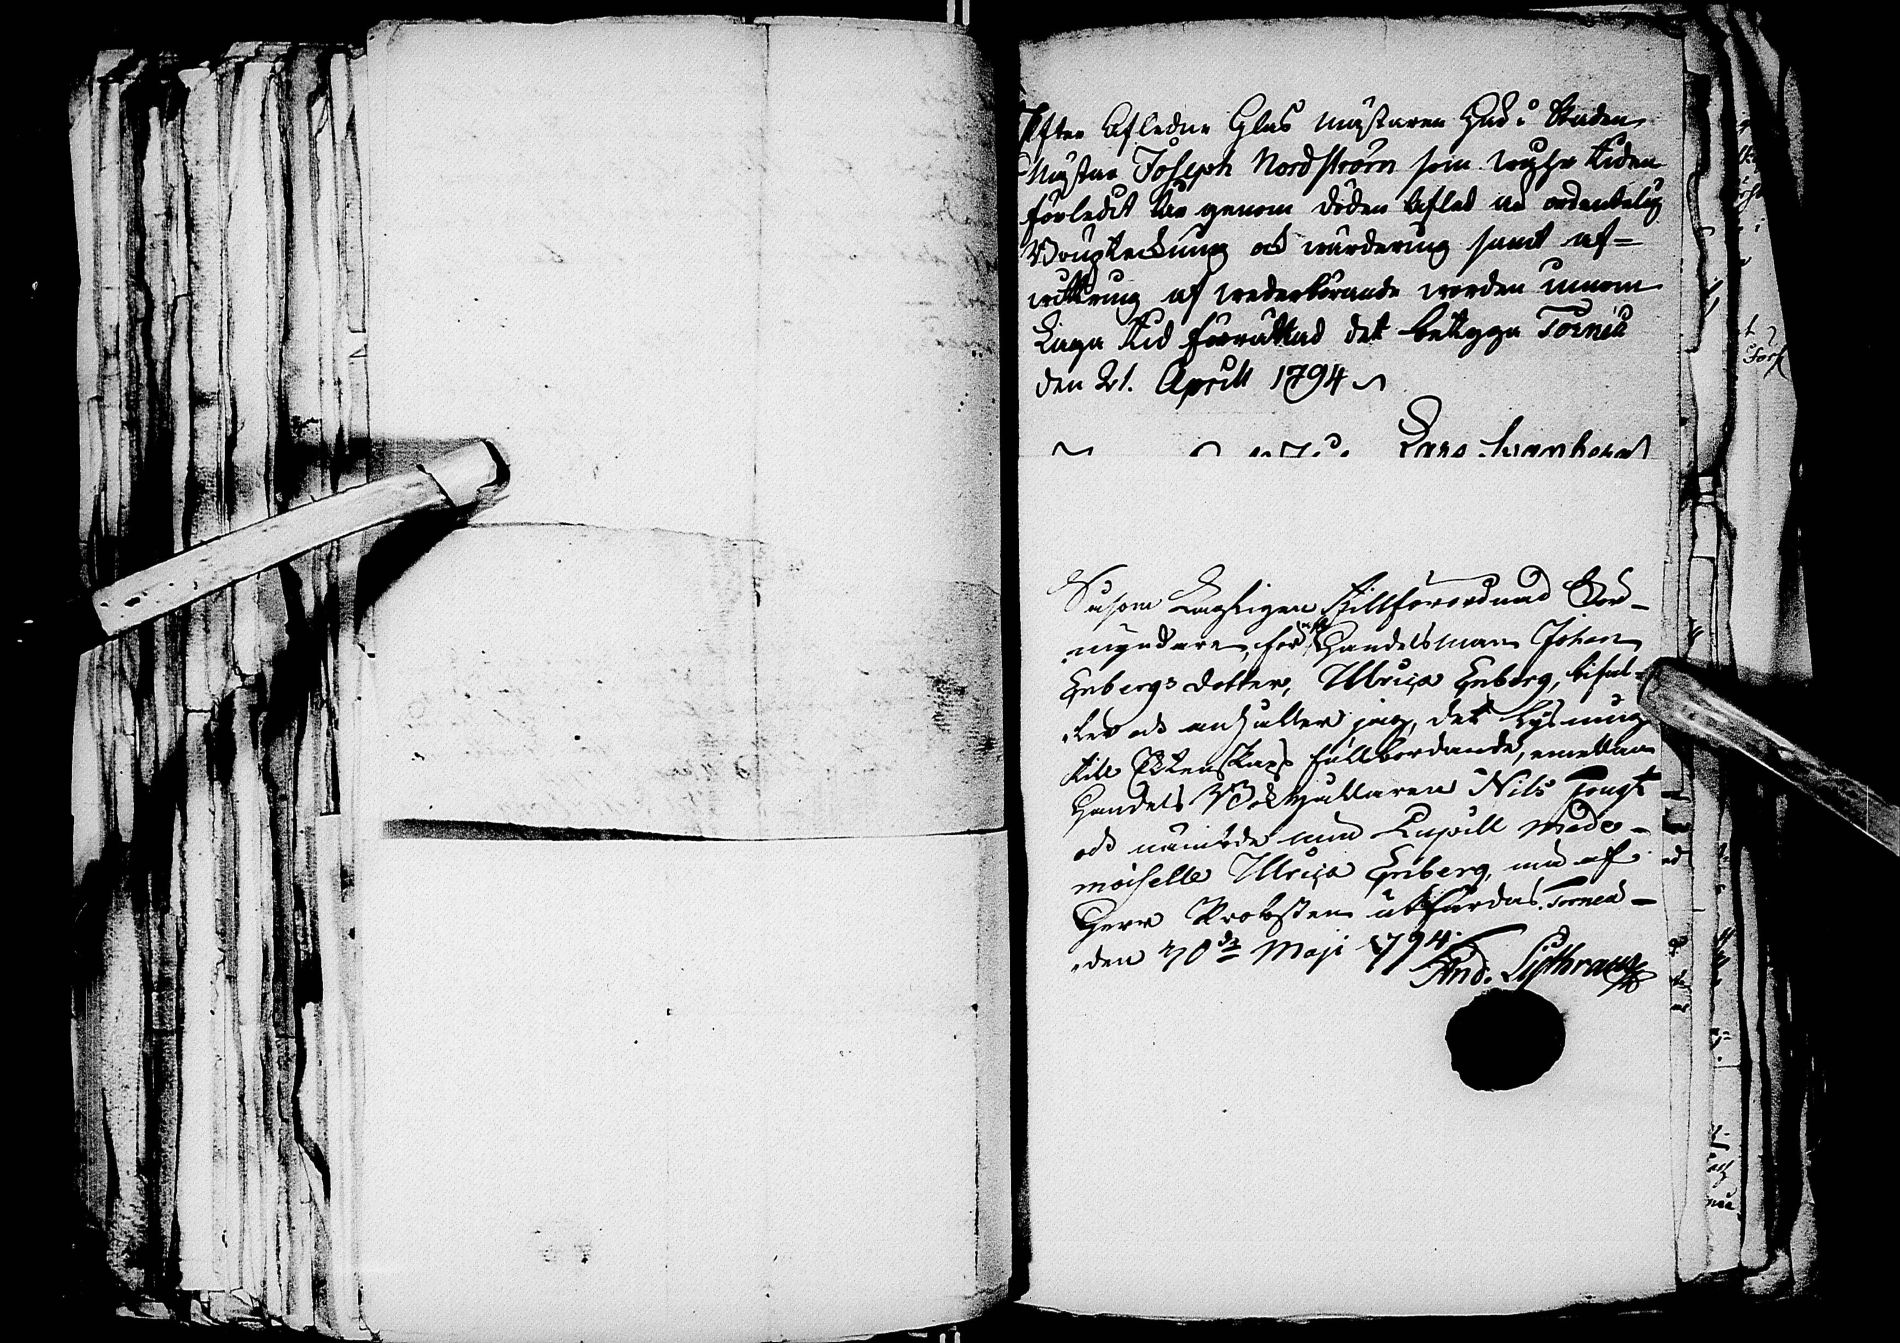 Efter Afledne Glas mästaren här i Staden
Mästar Joseph Nordström som wissse tiden
förledit År genom döden Afled är ordentelig
Boupteckning och wärdering samt af=
wittring af wederbörande worden innom
Laga tid förrättad det betyga Torneå
den 21. Aprill 1794
Lars Swanberg
Såsom Lagligen tillförordnad För-
myndare, för Handelsman Johan
Enbergs dotter, Ulrica Enberg, bifal-
ler och anhåller jag, det Lysning
till Ecktenskaps fullbordande, emellan
Handels Bokhållaren Nils
och nämnde min Pupill Made-
moiselle Ulrica Enberg, må af
Herr Probsten utfärdas. Torneå
den 30de Maji 1794.
And. Liljebrand